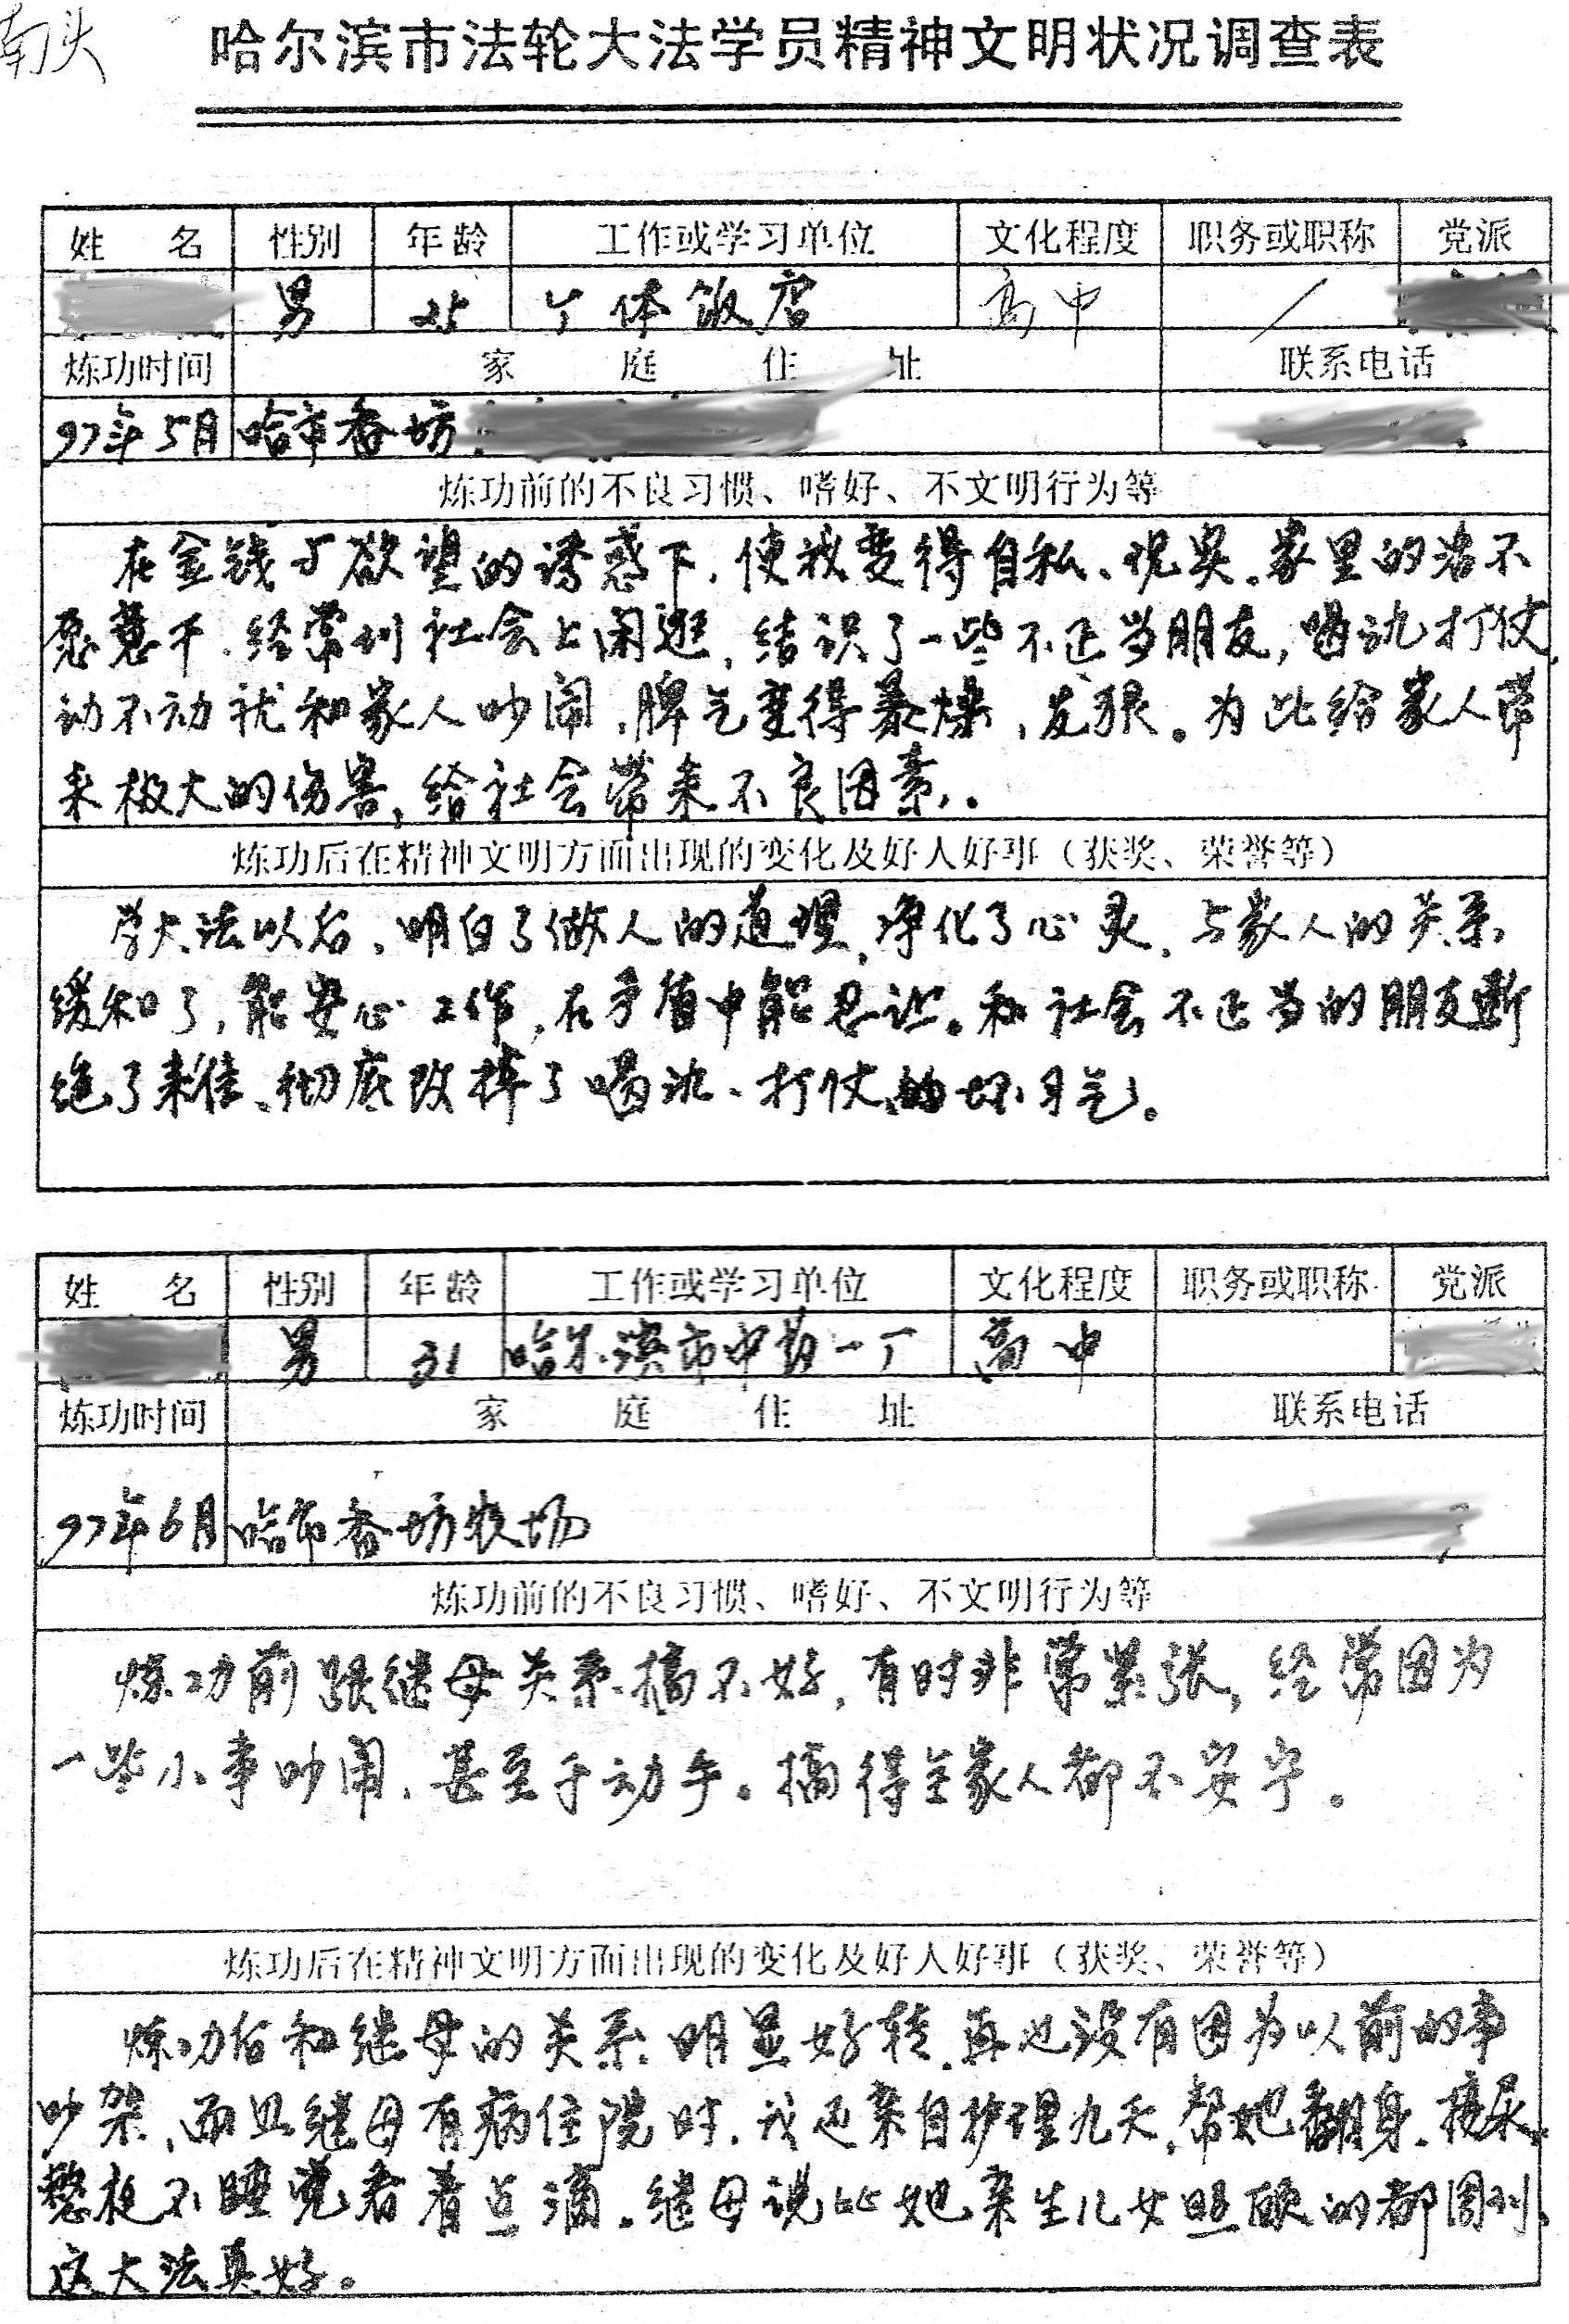 南头
哈尔滨市法轮大法学员精神文明状况调查表
姓 名 性别 年龄 工作或学习单位 文化程度 职务或职称 党派
男 25 个体饭店 高中 /
炼功时间 家 庭 住 址 联系电话
97年5月 哈市香坊
炼功前的不良习惯、嗜好、不文明行为等
在金钱与欲望的诱惑下,使我变得自私、现实。家里的活不
愿意干.经常到社会上闲逛,结识了一些不正当朋友,喝酒打仗,
动不动就和家人吵闹,脾气变得暴燥,发狠。为此给家人带
来极大的伤害,给社会带来不良因素.
炼功后在精神文明方面出现的变化及好人好事（获奖、荣誉等）
学大法以后,明白了做人的道理,净化了心灵,与家人的关系
缓和了,能安心工作,在矛盾中能忍让。和社会不正当的朋友断
绝了来往、彻底改掉了喝酒、打仗的坏习气。
姓 名 性别 年龄 工作或学习单位 文化程度 职务或职称 党派
男 31 哈尔滨市中药一厂 高中
炼功时间 家 庭 住 址 联系电话
97年6月 哈市香坊农场
炼功前的不良习惯、嗜好、不文明行为等
炼功前跟继母关系搞不好,有时非常紧张,经常因为
一些小事吵闹.甚至于动手。搞得全家人都不安宁。
炼功后在精神文明方面出现的变化及好人好事（获奖、荣誉等）
炼功后和继母的关系明显好转,再也没有因为以前的事
吵架、而且继母有病住院时.我还亲自护理九天,帮她翻身.接尿,
整夜不睡觉看着点滴。继母说比她亲生儿女照顾的都周到,
这大法真好。